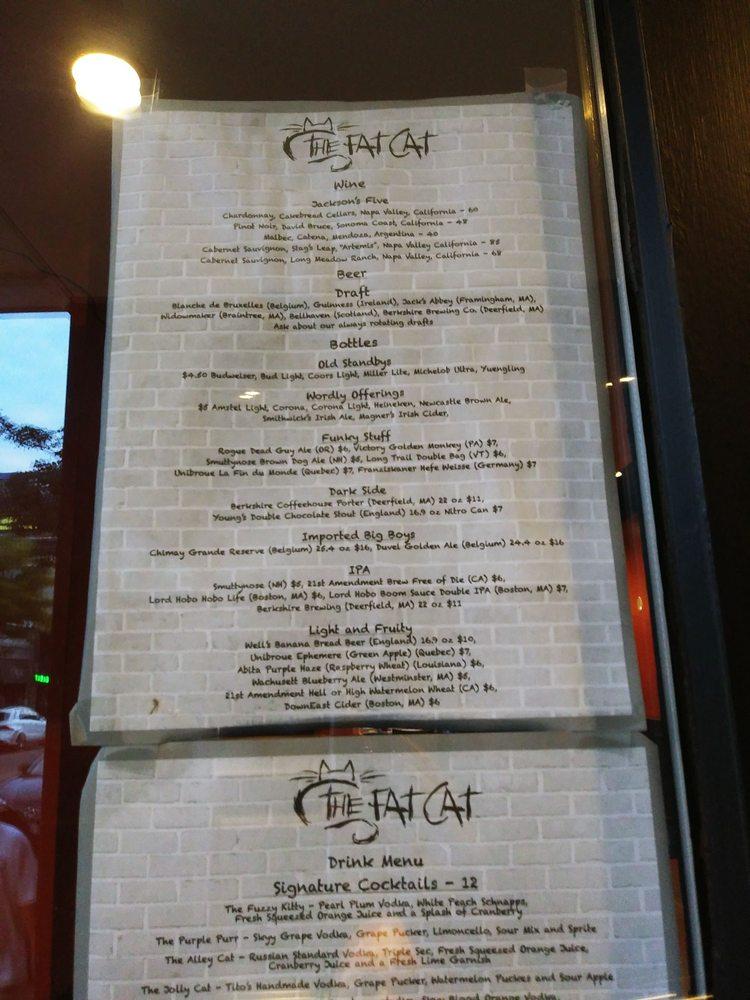 THE FAT CAT
Wine
Jackson's Five
Chardonnay, Cakebread Cellars, Napa Valley, California - 60
Pinot Noir, David Bruce, Sonoma Coast, California - 48
Malbec, Catena, Mendoza, Argentina - 40
Cabernet Sauvignon, Stag's Leap, "Artemis", Napa Valley California - 85
Cabernet Sauvignon, Long Meadow Ranch, Napa Valley, California - 68
Beer
Draft
Blanche de Bruxelles (Belgium), Guinness (Ireland), Jack's Abbey (Framingham, MA),
Widowmaker (Braintree, MA), Bellhaven (Scotland), Berkshire Brewing Co. (Deerfield, MA)
Ask about our always rotating drafts
Bottles
Old Standbys
$4.50 Budweiser, Bud Light, Coors Light, Miller Lite, Michelob Ultra, Yuengling
Wordly Offerings
$5 Amstel Light, Corona, Corona Light, Heineken, Newcastle Brown Ale,
Smithwick's Irish Ale, Magner's Irish Cider,
Funky Stuff
Rogue Dead Guy Ale (OR) $6, Victory Golden Monkey (PA) $7,
Smuttynose Brown Dog Ale (NH) $5, Long Trail Double Bag (VT) $6,
Unibroue La Fin du Monde (Quebec) $7, Franziskaner Hefe Weisse (Germany) $7
Dark Side
Berkshire Coffeehouse Porter (Deerfield, MA) 22 oz $11,
Young's Double Chocolate Stout (England) 16.9 oz Nitro Can $7
Imported Big Boys
Chimay Grande Reserve (Belgium) 25.4 oz $16, Duvel Golden Ale (Belgium) 24.4 oz $16
IPA
Smuttynose (NH) $5, 21st Amendment Brew Free of Die (CA) $6,
Lord Hobo Hobo Life (Boston, MA) $6, Lord Hobo Boom Sauce Double IPA (Boston, MA) $7,
Berkshire Brewing (Deerfield, MA) 22 oz $11
Light and Fruity
Well's Banana Bread Beer (England) 16.9 oz $10,
Unibroue Ephemere (Green Apple) (Quebec) $7,
Abita Purple Haze (Raspberry Wheat) (Louisiana) $6,
Wachusett Blueberry Ale (Westminster, MA) $5,
21st Amendment Hell or High Watermelon Wheat (CA) $6,
DownEast Cider (Boston, MA) $6
THE FAT CAT
Drink Menu
Signature Cocktails - 12
The Fuzzy Kitty - Pearl Plum Vodka, White Peach Schnapps,
Fresh Squeezed Orange Juice and a Splash of Cranberry
The Purple Purr - Skyy Grape Vodka, Grape Pucker, Limoncello, Sour Mix and Sprite
The Alley Cat - Russian Standard Vodka, Triple Sec, Fresh Squeezed Orange Juice,
Cranberry Juice and a Fresh Lime Garnish
The Jolly Cat - Tito's Handmade Vodka, Grape Pucker, Watermelon Pucker and Sour Apple
Blood Orange Vodka,